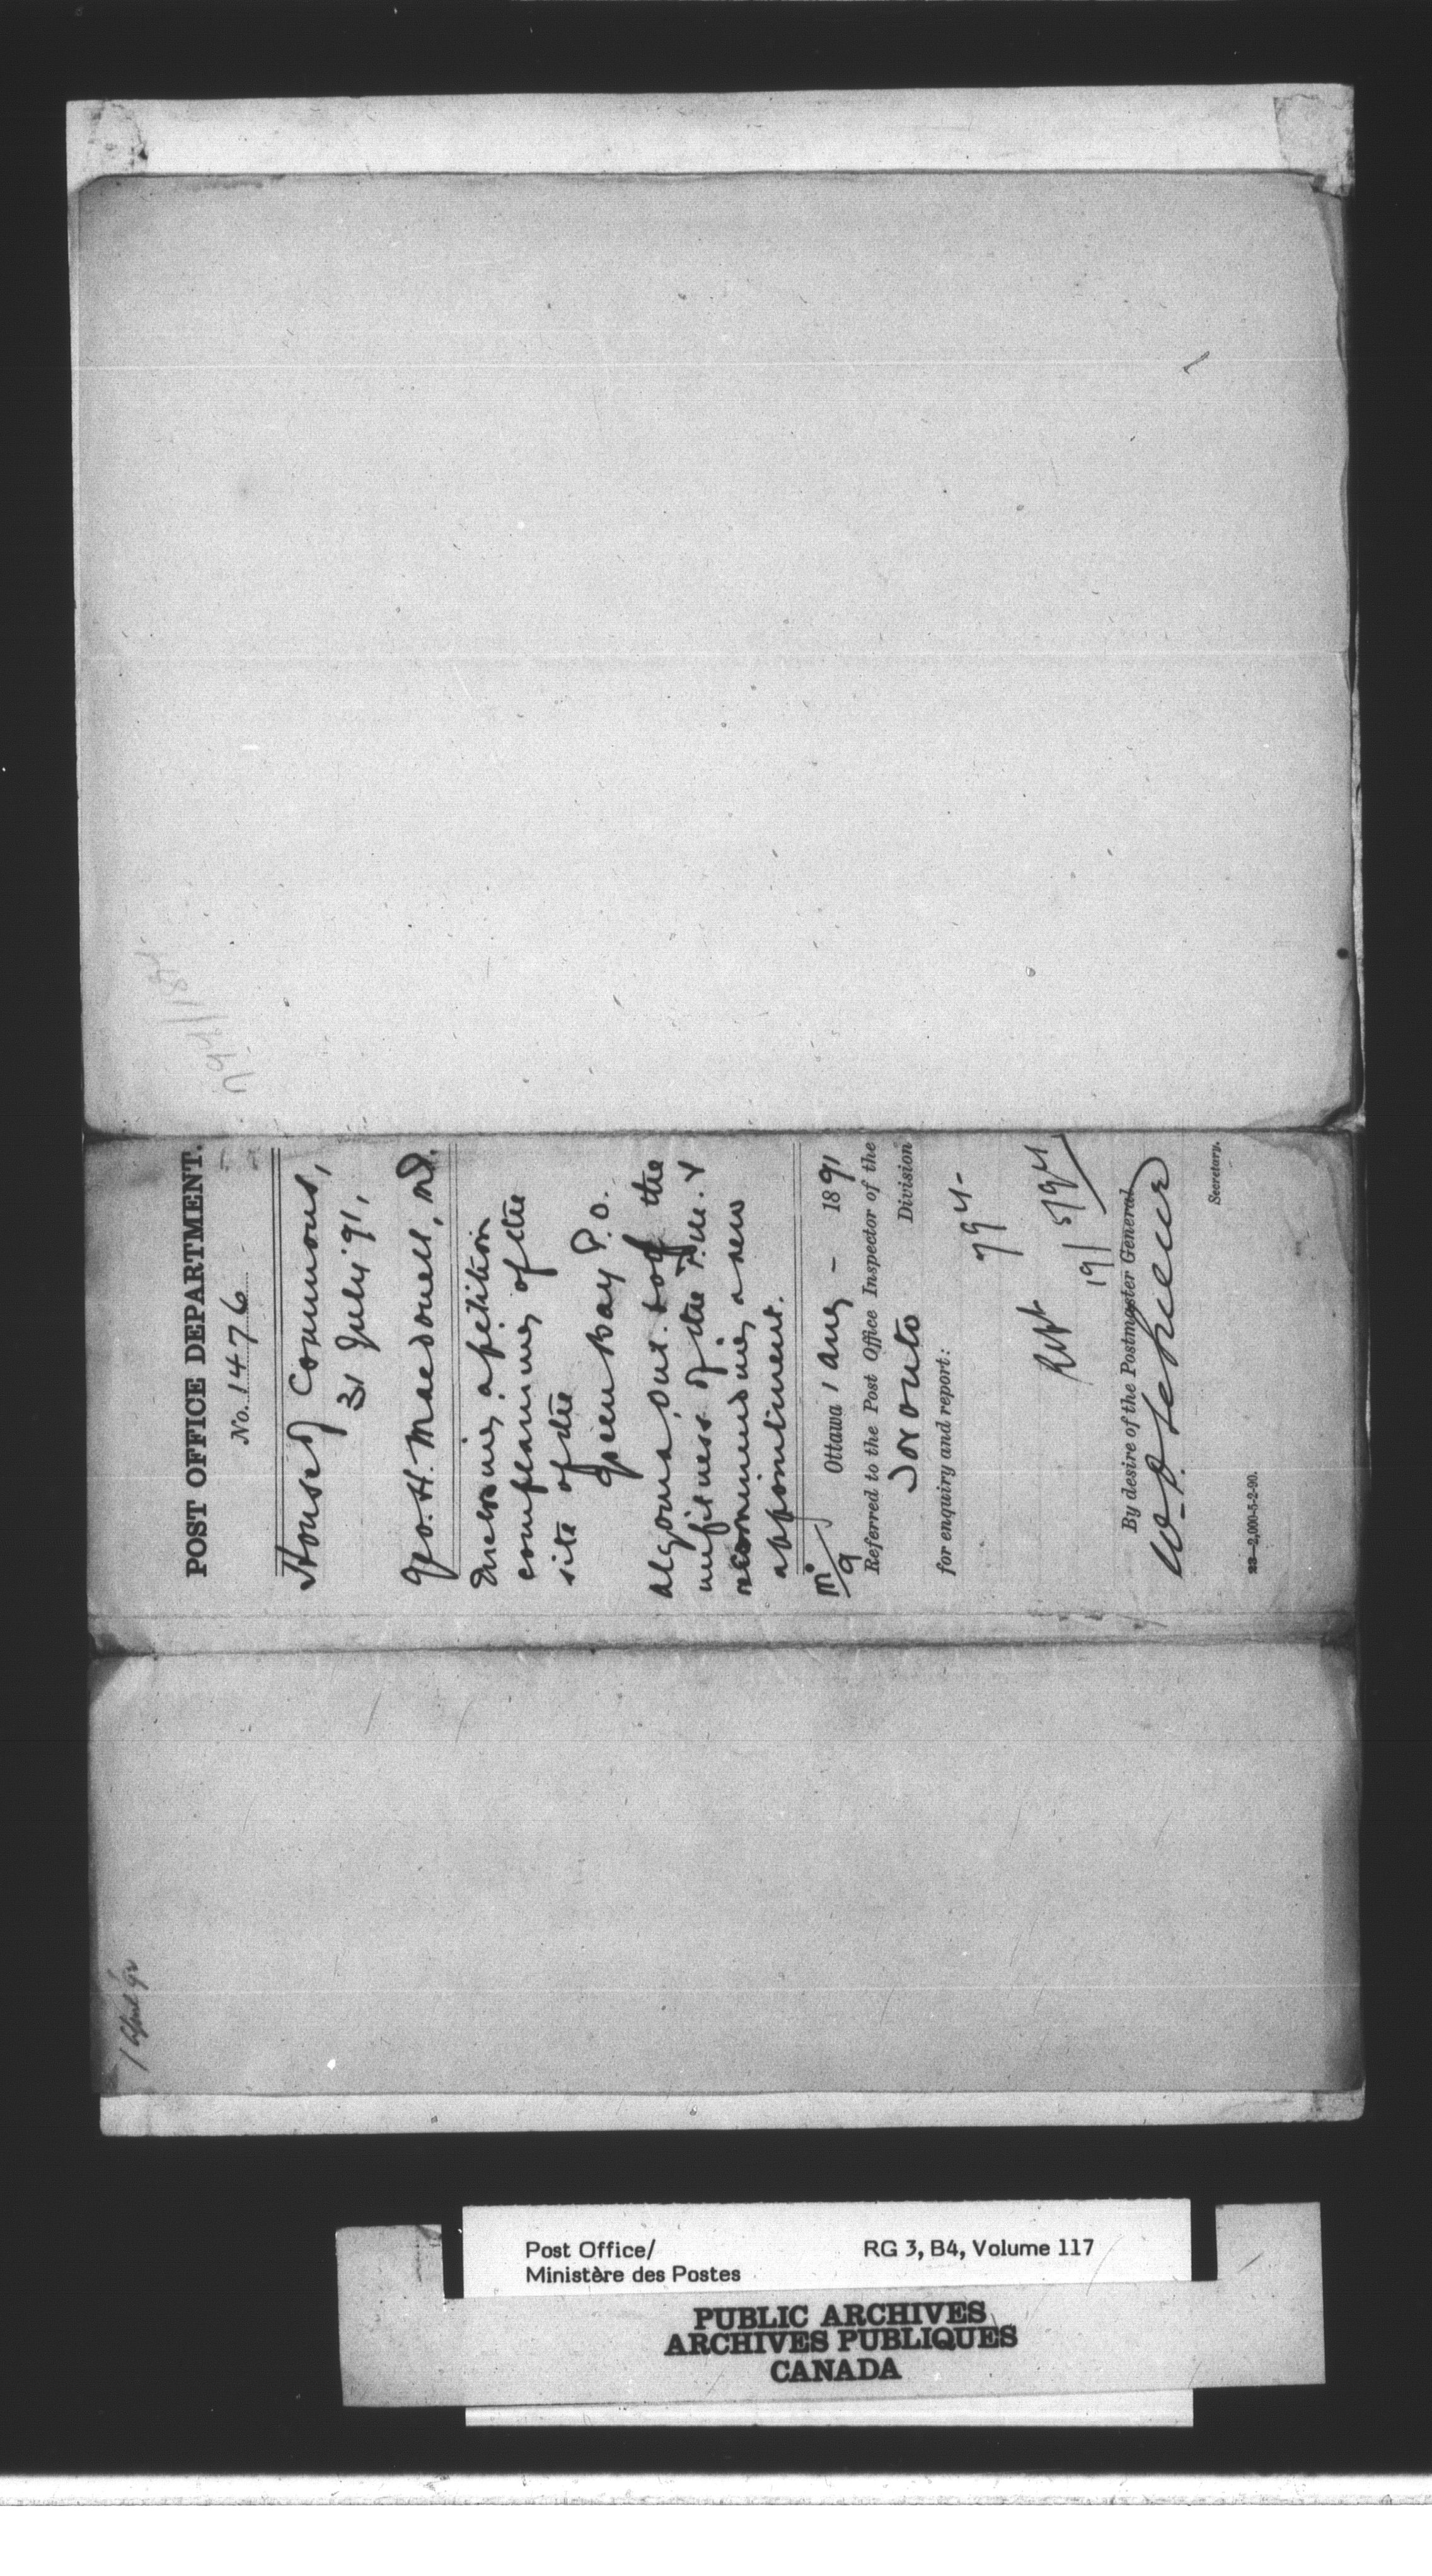 POST OFFICE DEPARTMENT.
No. 1476
House of Commons,
31 July 91,
Geo. H. Macdonell, M.P.
Enclosing a petition
complaining of the
site of the
Green Bay P.O.
Algoma, Ont. & of the
unfitness of the P.M. &
recommending a new
appointment.
Ottawa 1 Aug - 1891
Referred to the Post Office Inspector of the
Toronto Division
for enquiry and report:
794
Rept
19/5/94
By desire of the Postmaster General
Secretary.
23—2,000-5-2-90.
1 April 92
Post Office/ RG 3, B4, Volume 117
Ministère des Postes
PUBLIC ARCHIVES
ARCHIVES PUBLIQUES
CANADA